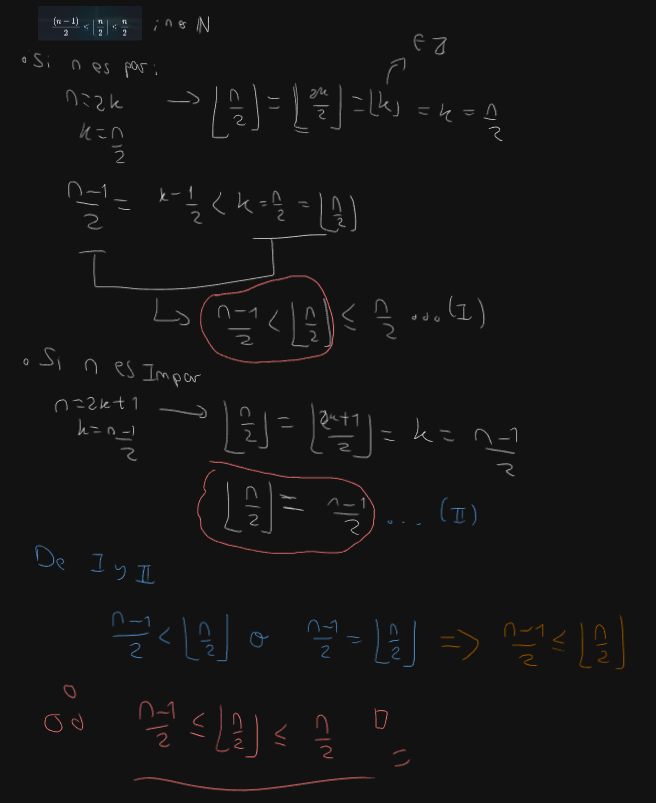 (n-1)/2 < ⌊n/2⌋ < n/2 ; n ∈ ℕ
∈ ℤ
• Si n es par:
n=2k → ⌊n/2⌋ = ⌊2k/2⌋ = ⌊k⌋ = k = n/2
k=n/2
n-1/2 = k-1/2 < k=n/2 = ⌊n/2⌋
↳ n-1/2 < ⌊n/2⌋ ≤ n/2 ...(I)
• Si n es Impar
n=2k+1 → ⌊n/2⌋ = ⌊2k+1/2⌋ = k = n-1/2
k=n-1/2
⌊n/2⌋ = n-1/2 ... (II)
De I y II
n-1/2 < ⌊n/2⌋ o n-1/2 = ⌊n/2⌋ => n-1/2 ≤ ⌊n/2⌋
∴ n-1/2 ≤ ⌊n/2⌋ ≤ n/2 □